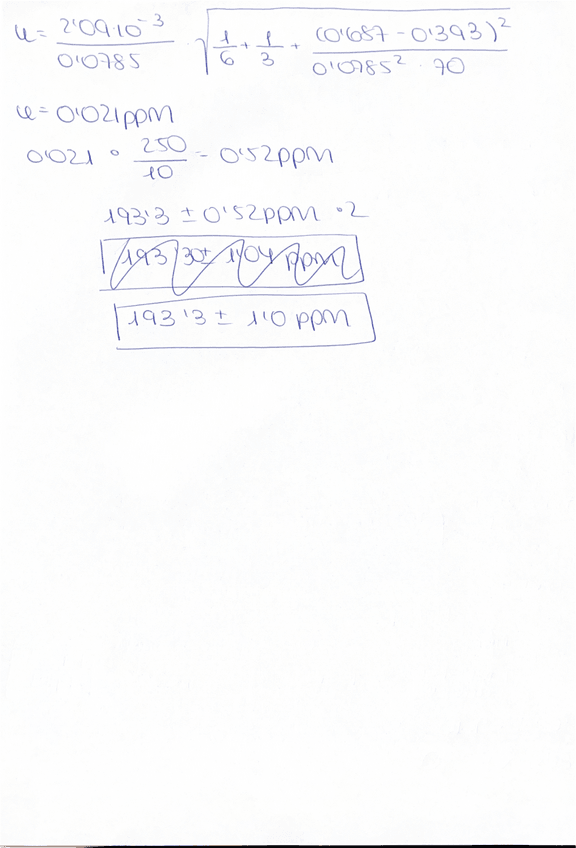 u = 2'09·10⁻³ / 0'0785 · √(1/6 + 1/3 + (0'657 - 0'393)² / 0'0785² · 70)
u = 0'021 ppm
0'021 · 250/10 = 0'52 ppm
193'3 ± 0'52 ppm · 2
193'30 ± 1'04 ppm
193'3 ± 1'0 ppm